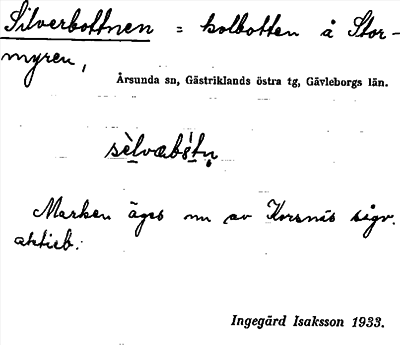 Silverbottnen = kolbotten å Stor-
myren,
Årsunda sn, Gästriklands östra tg, Gävleborgs län.
Marken äges nu av Korsnäs sågv.
aktieb.
Ingegärd Isaksson 1933.